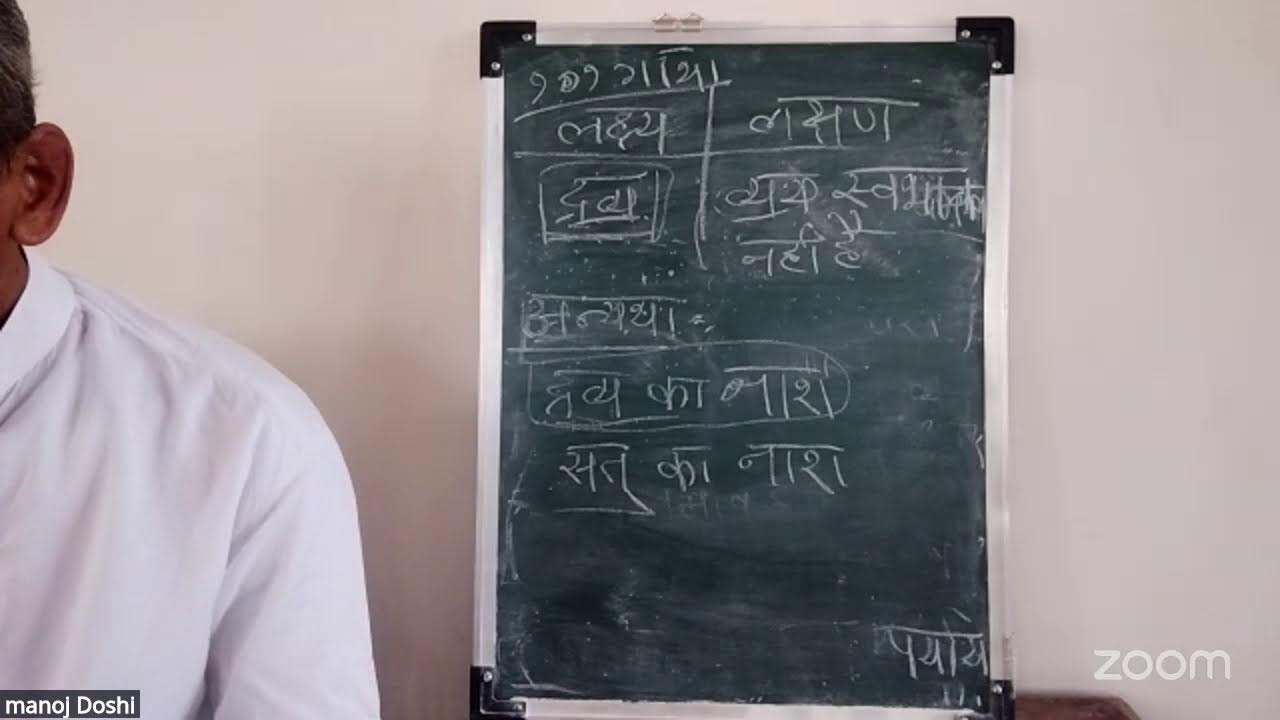 १०१ गाथा
लक्ष्य लक्षण
द्रव्य व्यय स्वभाव
नहीं है
अन्यथा :-
द्रव्य का नाश
सत् का नाश
पर्याय
zoom
manoj Doshi